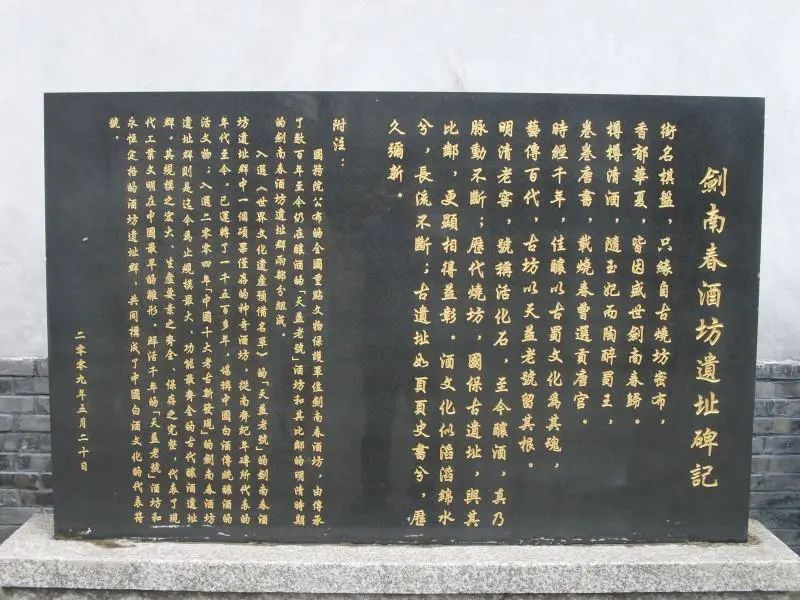 劍南春酒坊遺址碑記
街名棋盤，只緣自古燒坊密布，
香郁華夏，皆因盛世劍南春歸。
樽樽清酒，隨玉妃而陶醉蜀王，
卷卷唐書，載燒春曹選貢唐宫。
時經千年，佳釀以古蜀文化為其魂，
藝傳百代，古坊以天益老號留其根。
明清老窖，號稱活化石，至今釀酒，真乃
脉動不斷；歷代燒坊，國保古遺址，與其
比鄰，更顯相得益彰。酒文化似滔滔綿水
兮，長流不斷；古遺址如頁頁史書兮，歷
久彌新。
附注：
國務院公布的全國重點文物保護單位劍南春酒坊，由傳承
了數百年至今仍在釀酒的「天益老號」酒坊和其比鄰的明清時期
的劍南春酒坊遺址群兩部分組成。
入選《世界文化遺產預備名單》的「天益老號」的劍南春酒
坊遺址群中一個碩果僅存的神奇酒坊，從南齊紀年磚所代表的
年代至今，已運轉了一千五百多年，堪稱中國白酒傳統釀酒的
活文物；入選二零零四年「中國十大考古新發現」的劍南春酒坊
遺址群則是迄今為止規模最大、功能最齊全的古代釀酒遺址
群，其規模之宏大、生產要素之齊全、保存之完整，代表了現
代工業文明在中國最早的雛形。鮮活千年的「天益老號」酒坊和
永恒定格的酒坊遺址群，共同構成了中國白酒文化的代表符
號。
二零零九年五月二十日